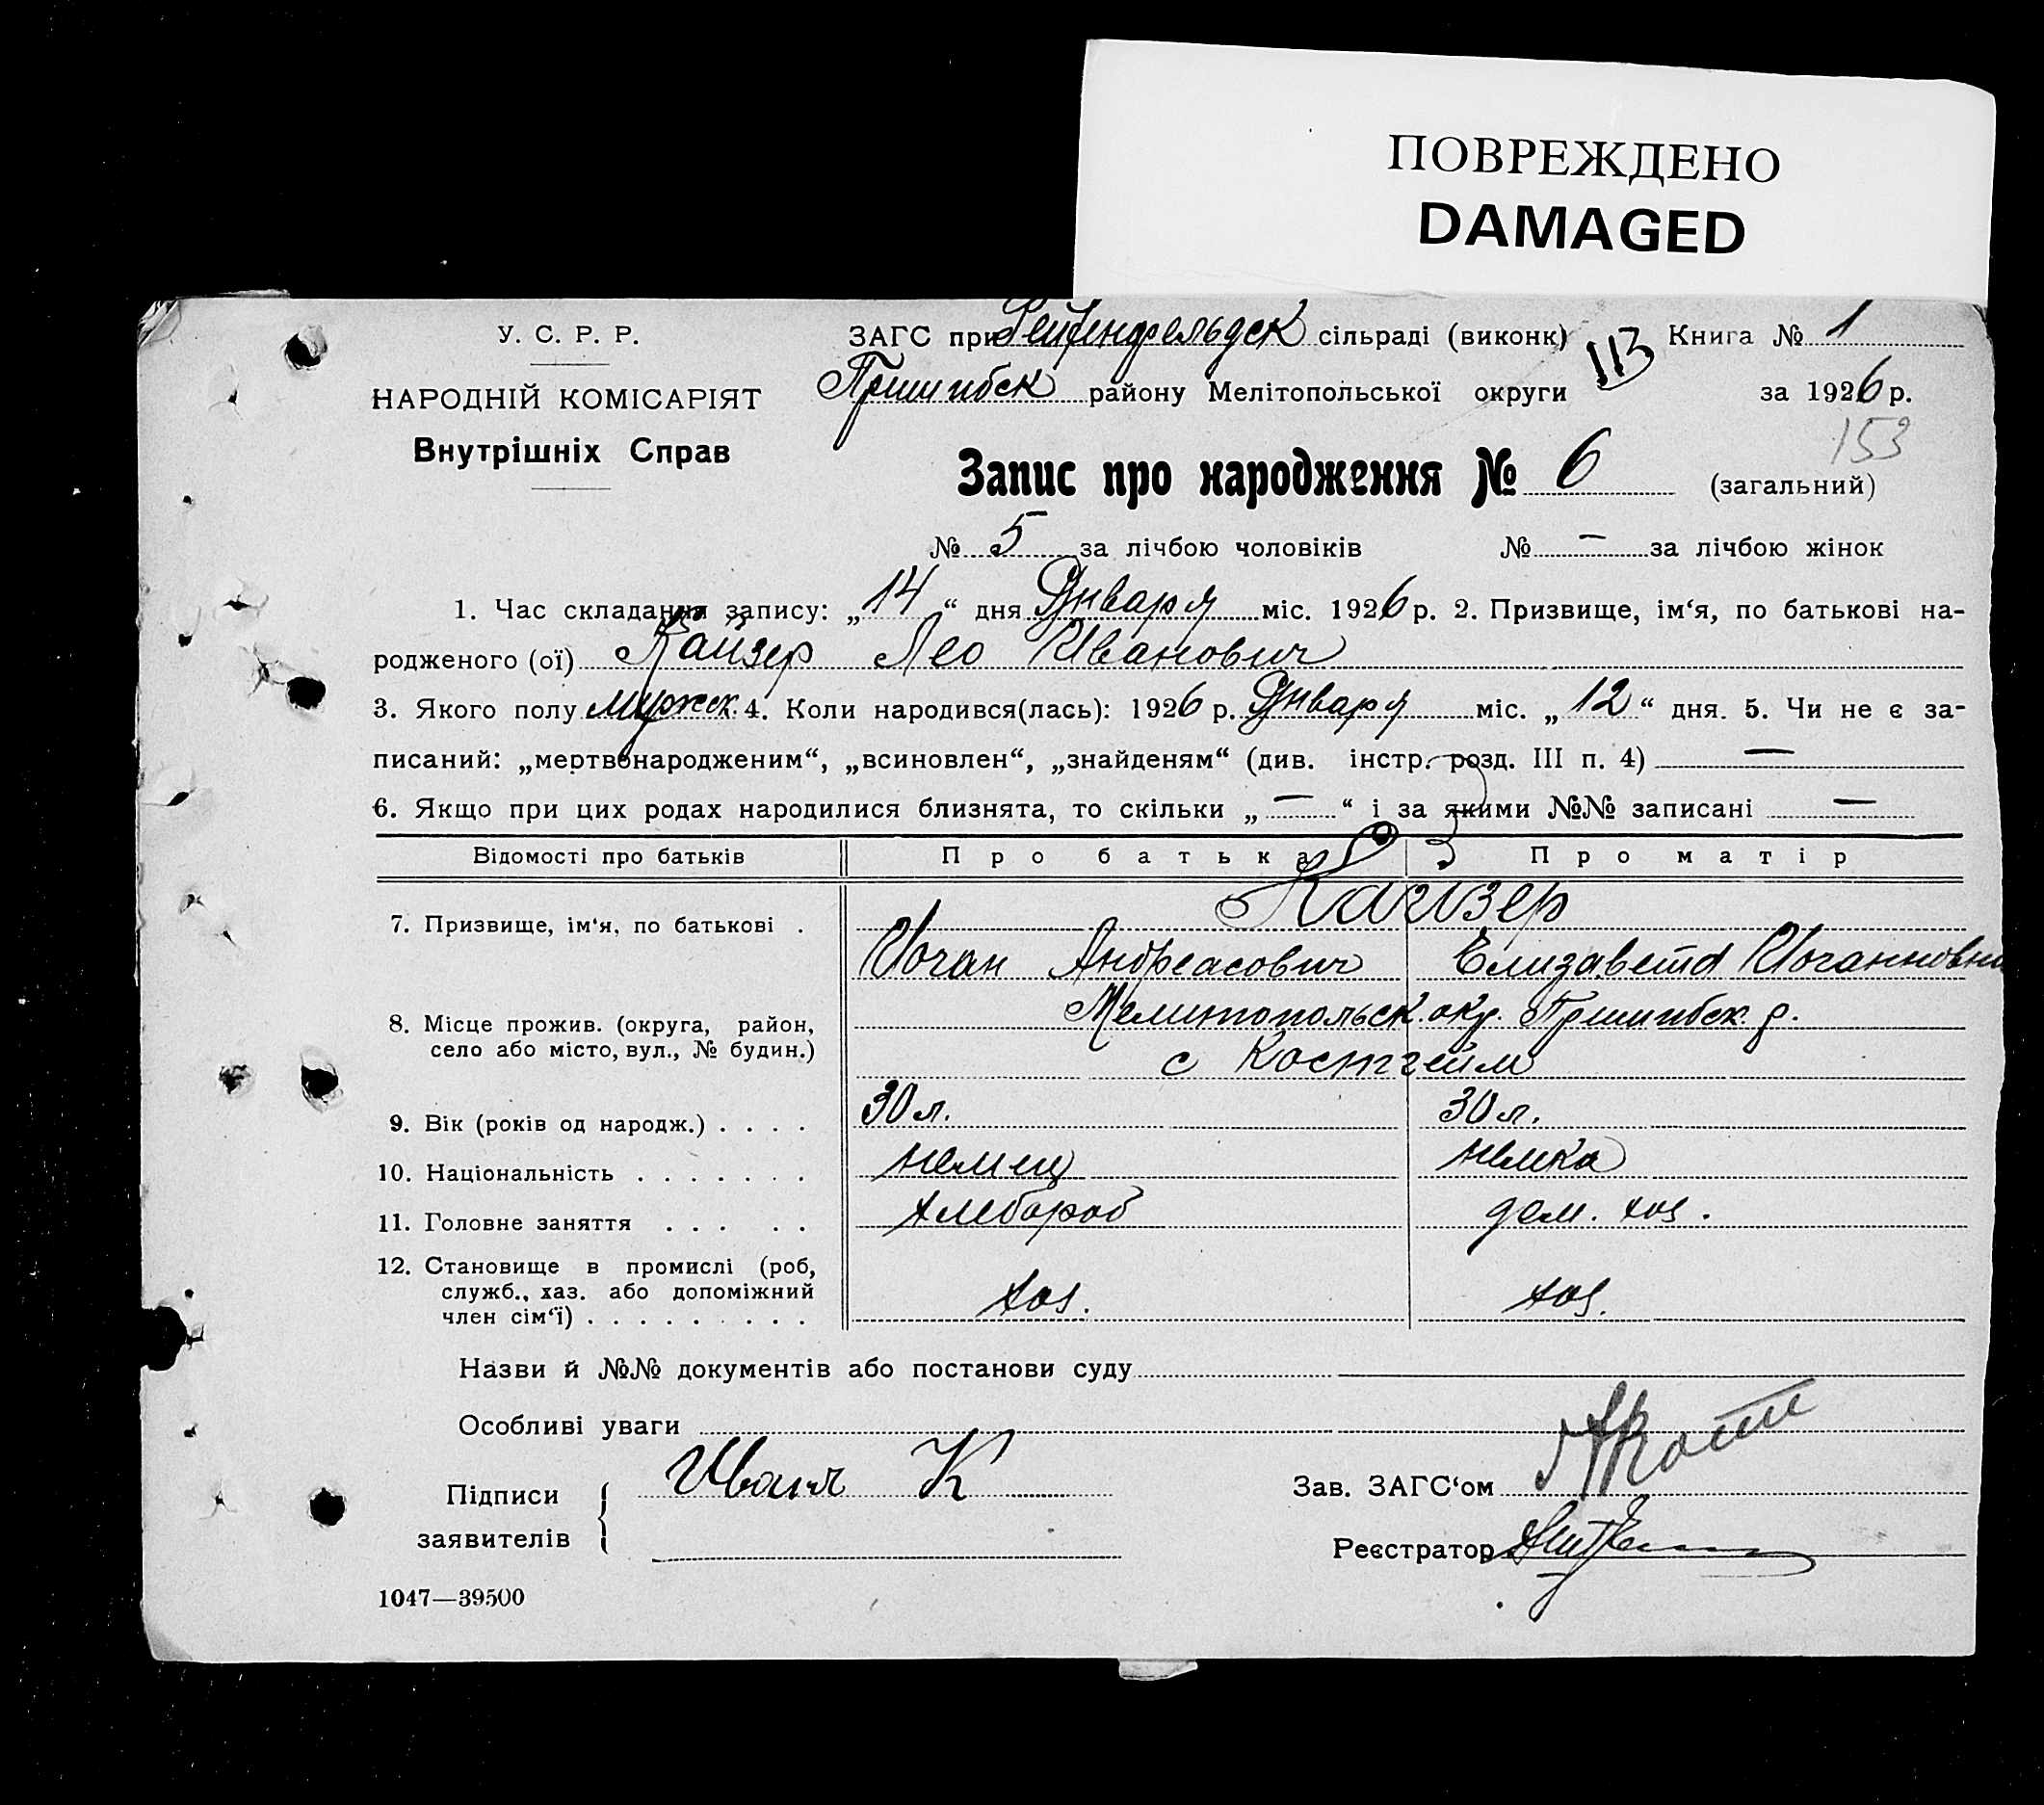 ПОВРЕЖДЕНО
DAMAGED
У. С. Р. Р.
НАРОДНІЙ КОМІСАРІЯТ
Внутрішніх Справ
ЗАГС при Гейденфельдск сільраді (виконк) 113 Книга № 1
Пришибск району Мелітопольської округи за 1926 р.
153
Запис про народження № 6 (загальний)
№ 5 за лічбою чоловіків № — за лічбою жінок
1. Час складання запису: „14“ дня Января міс. 1926 р. 2. Призвище, ім‘я, по батькові на-
родженого (ої) Кайзер Лео Иванович
3. Якого полу мужск. 4. Коли народився(лась): 1926 р. Января міс. „12“ дня. 5. Чи не є за-
писаний: „мертвонародженим“, „всиновлен“, „знайденям“ (див. інстр. розд. III п. 4) —
6. Якщо при цих родах народилися близнята, то скільки „—“ і за якими №№ записані —
Відомості про батьків Про батька Про матір
Кайзер
7. Призвище, ім‘я, по батькові .
Иоган Андреасович Елизавета Иоганновна
8. Місце прожив. (округа, район,
село або місто, вул., № будин.)
Мелитопольск. окр. Пришибск. р.
с Костгейм
9. Вік (років од народж.) . . . . 30 л. 30 л.
10. Національність . . . . . . . немец немка
11. Головне заняття . . . . . хлебороб дом. хоз.
12. Становище в промислі (роб,
служб., хаз. або допоміжний
член сім‘ї) . . . . . . . . . хоз. хоз.
Назви й №№ документів або постанови суду
Особливі уваги
Підписи
заявителів
К
Зав. ЗАГС‘ом
Реєстратор
1047—39500